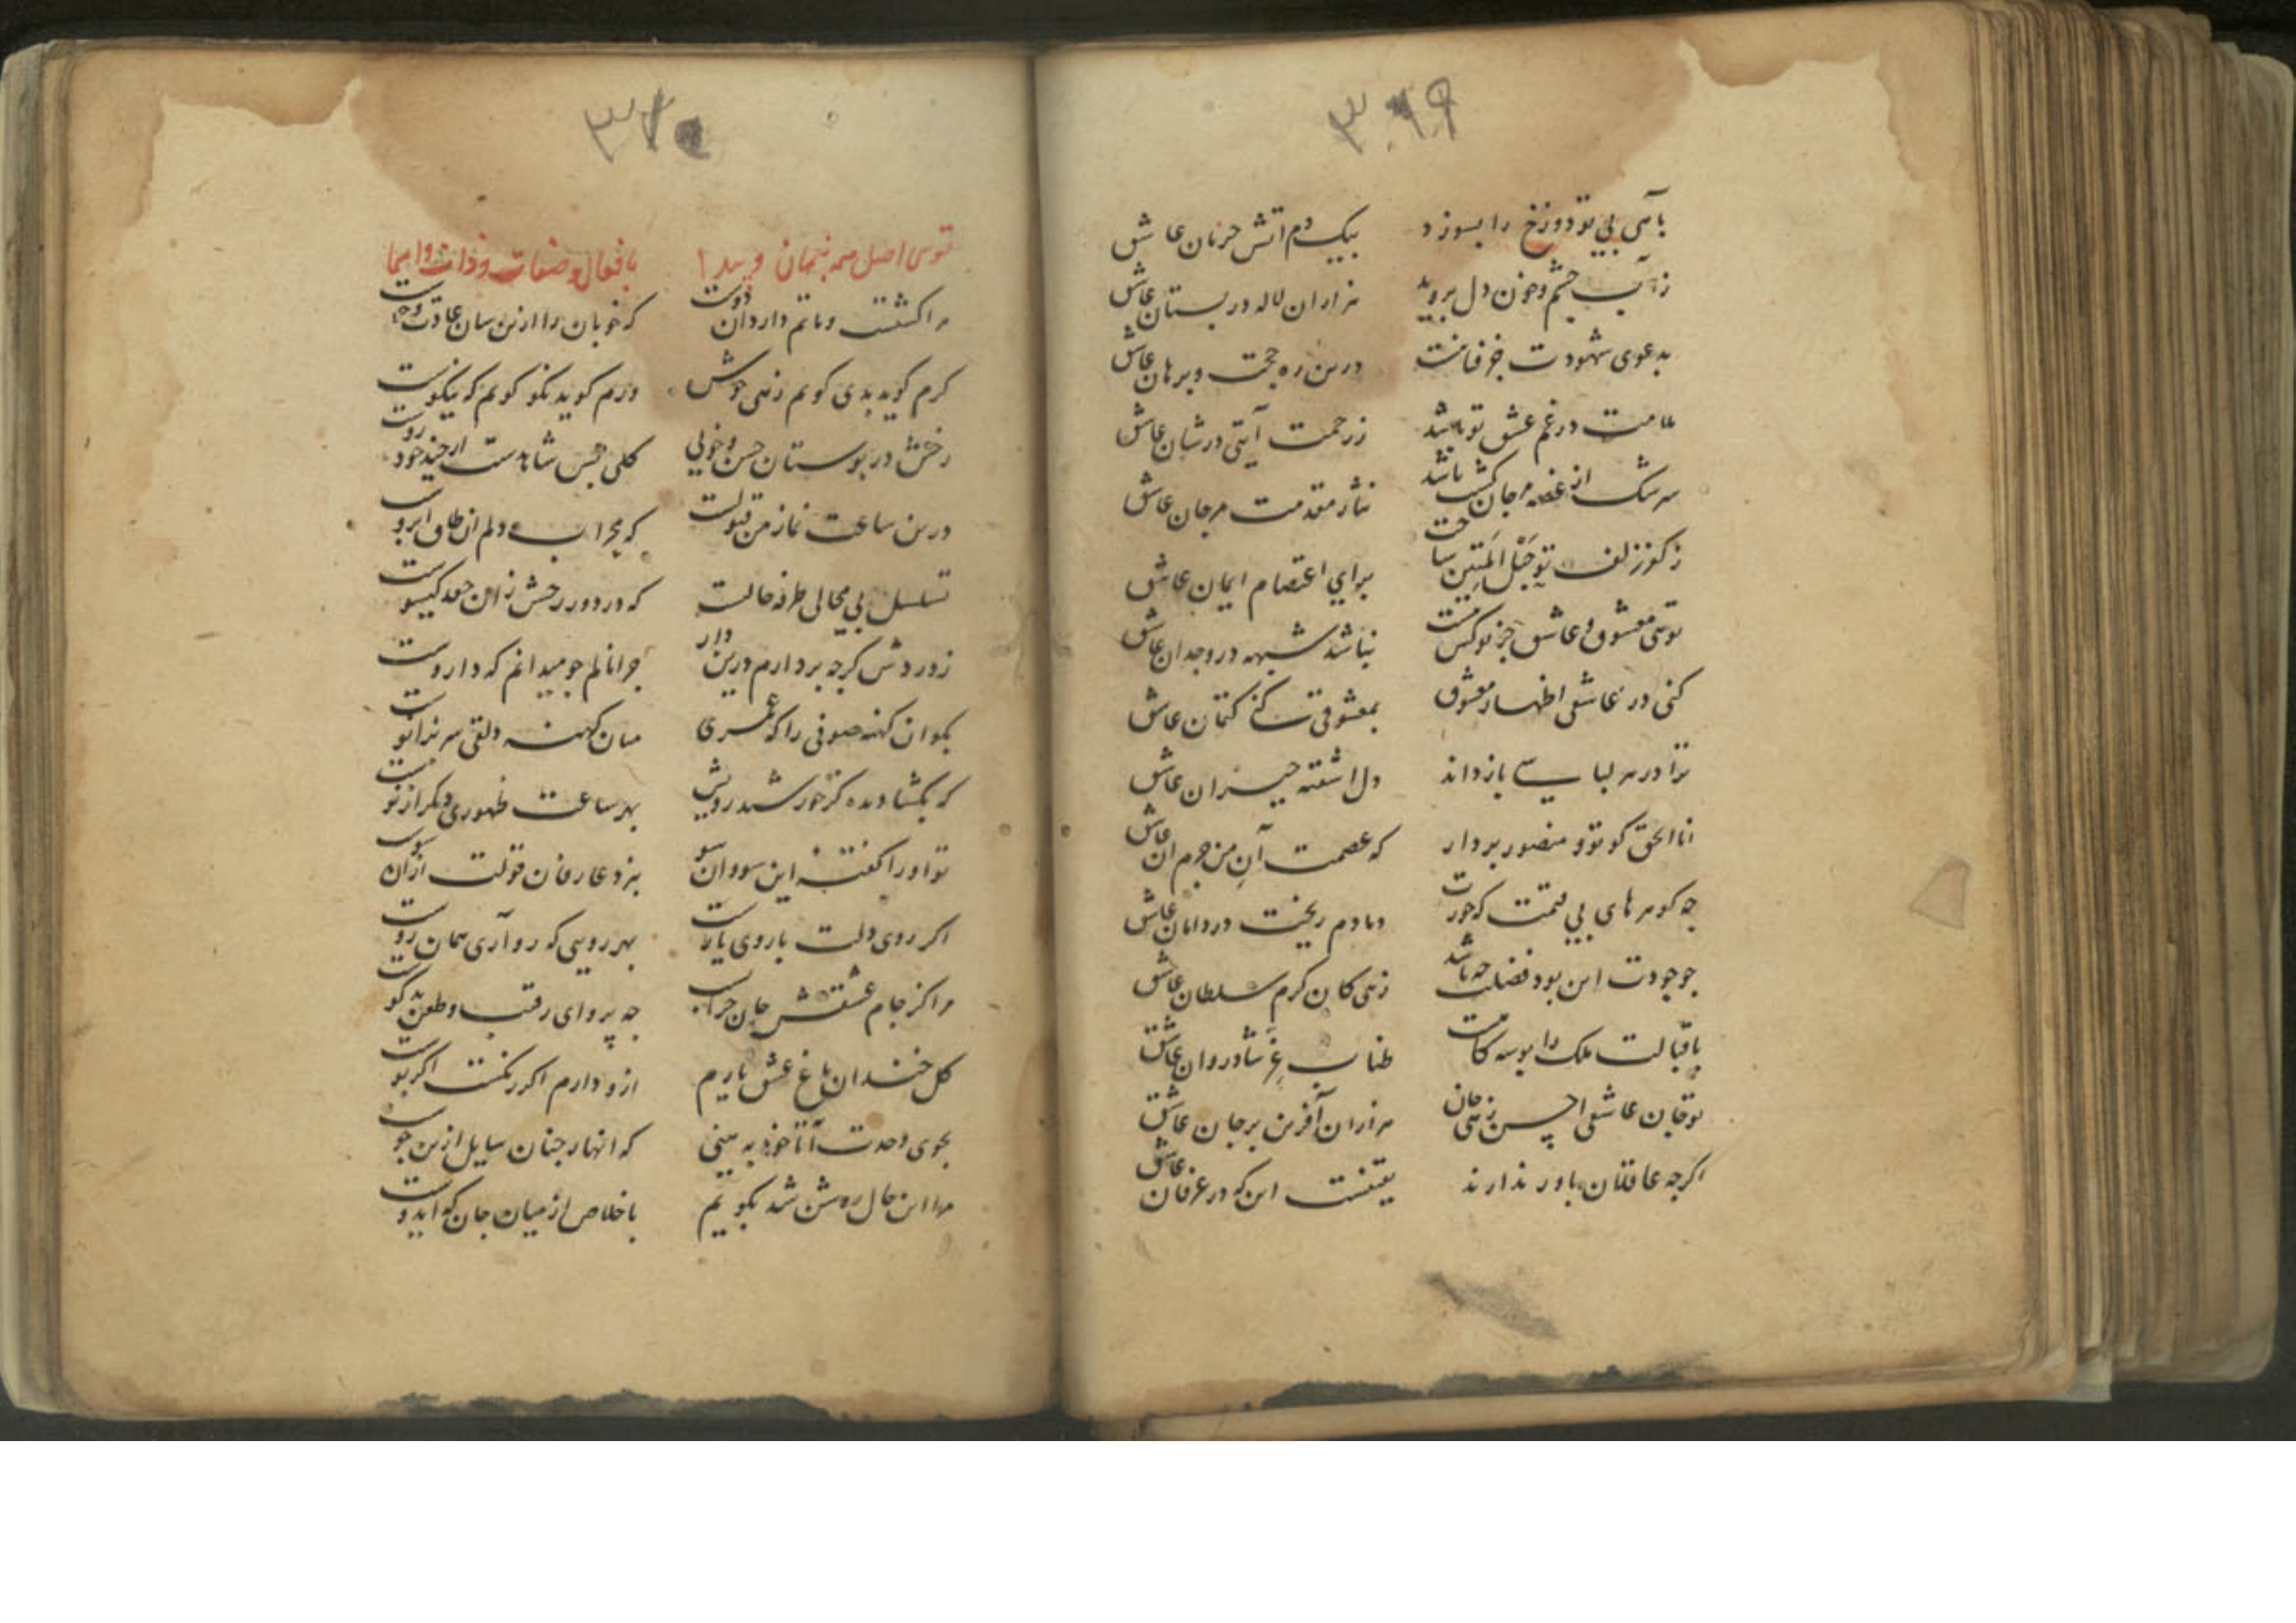 ۳۶۹
بآهی بی تو دوزخ را بسوزد بیکدم آتش حرمان عاشق
ز آب چشم و خون دل بروید هزاران لاله در بستان عاشق
بدعوی شهودت درین ره حجت و برهان عاشق
ملامت در غم عشق تو باشد ز رحمت آیتی در شان عاشق
سرشک از غصه مرجان کشت باشد نثار مقدمت مرجان عاشق
ز کفر زلف تو حَبْلُ المَتِین ساخت برای اعتصام ایمان عاشق
توئی معشوق و عاشق جز تو کس نیست نباشد شبهه در وجدان عاشق
کنی در عاشقی اظهار معشوق بمعشوقیت کتمان عاشق
ترا در هر لباسی بازداند دل اشفته حیران عاشق
انا الحق کو تو و منصور بردار که عصمت آنِ من جرم آن عاشق
چه کوهرهای بی قیمت که جودت دمادم ریخت در دامان عاشق
چو جودت این بود فضلت چه باشد زهی کان کرم سلطان عاشق
باقبالت ملک را بوسه کاهست طناب شادروان عاشق
تو جان عاشقی احسن زهی جان هزاران آفرین بر جان عاشق
اکرچه عاقلان باور ندارند یقینست این که در عرفان عاشق
۳۷۰
توئی اصل همه پنهان و پیدا بافعال و صفات و ذات و اسما
مرا کشتست و ماتم دارد آن دوست که خوبان را ازین سان عادت و خوست
کرم کوید بدی کویم زهی خوش ورم کوید نکو کویم که نیکوست
رخش در بوستان حسن و خوبی کلی
درین ساعت نماز من قبولست که محراب دلم آن طاق ابروست
تسلسل بی محالی طرفه حالیست که در دور رخش زان جعد کیسوست
ز دردش کرچه بردارم درین دار چرا نالم چو میدانم که داروست
بکو آن کهنه صوفی را که عمری میان کهنه دلقی سر بزانوست
که بکشا دیده کز خورشید رویش بهر ساعت ظهوری دیکر از نوست
تو او را کفته این سو و آن سو بنزد عارفان قولت از آن سوست
اکر روی دلت با روی یارست بهر رویی که رو آری همان روست
مرا کز جام عشقش جان خرابست چه پروای رقیب و طعن بدکوست
کل خندان باغ عشق یارم ازو دارم اکر رنکست اکر بوست
بجوی وحدت آ تا خود به بینی که انهار جنان سایل ازین جوست
مرا این حال روشن شد بکویم باخلاص از میان جان که ای دوست